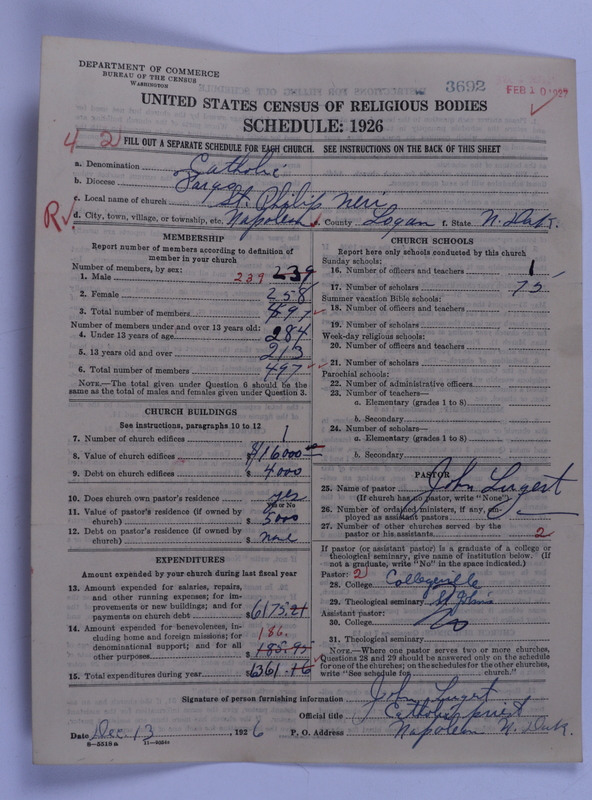 DEPARTMENT OF COMMERCE
BUREAU OF THE CENSUS
WASHINGTON
3692
FEB 10 1927
UNITED STATES CENSUS OF RELIGIOUS BODIES
SCHEDULE: 1926
4 2
FILL OUT A SEPARATE SCHEDULE FOR EACH CHURCH. SEE INSTRUCTIONS ON THE BACK OF THIS SHEET
a. Denomination Catholic
b. Diocese Fargo
c. Local name of church St. Philip Neri
R d. City, town, village, or township, etc. Napoleon e. County Logan f. State N. Dak.
MEMBERSHIP
Report number of members according to definition of
member in your church
Number of members, by sex:
1. Male 239 239
2. Female 258
3. Total number of members 497
Number of members under and over 13 years old:
4. Under 13 years of age 284
5. 13 years old and over 213
6. Total number of members 497
NOTE.—The total given under Question 6 should be the
same as the total of males and females given under Question 3.
CHURCH BUILDINGS
See instructions, paragraphs 10 to 12
7. Number of church edifices 1
8. Value of church edifices $16000
9. Debt on church edifices $4000
10. Does church own pastor's residence yes
Yes or No
11. Value of pastor's residence (if owned by
church) $5000
12. Debt on pastor's residence (if owned by
church) $none
EXPENDITURES
Amount expended by your church during last fiscal year
13. Amount expended for salaries, repairs,
and other running expenses; for im-
provements or new buildings; and for
payments on church debt $6175.21
14. Amount expended for benevolences, in-
cluding home and foreign missions; for
denominational support; and for all
other purposes 186. $185.95
15. Total expenditures during year $6361.16
CHURCH SCHOOLS
Report here only schools conducted by this church
Sunday schools:
16. Number of officers and teachers 1
17. Number of scholars 75
Summer vacation Bible schools:
18. Number of officers and teachers
19. Number of scholars
Week-day religious schools:
20. Number of officers and teachers
21. Number of scholars
Parochial schools:
22. Number of administrative officers
23. Number of teachers—
a. Elementary (grades 1 to 8)
b. Secondary
24. Number of scholars—
a. Elementary (grades 1 to 8)
b. Secondary
PASTOR
25. Name of pastor John Lugert
(If church has no pastor, write "None")
26. Number of ordained ministers, if any, em-
ployed as assistant pastors
27. Number of other churches served by the
pastor or his assistants 2
If pastor (or assistant pastor) is a graduate of a college or
theological seminary, give name of institution below. (If
not a graduate, write "No" in the space indicated.)
Pastor: 2
28. College Collegeville
29. Theological seminary St Johns
Assistant pastor:
30. College
31. Theological seminary
NOTE.—Where one pastor serves two or more churches,
Questions 28 and 29 should be answered only on the schedule
for one of the churches; on the schedules for the other churches,
write "See schedule for church."
Signature of person furnishing information John Lugert
Official title Catholic priest
Date Dec. 13, 1926 P. O. Address Napoleon N. Dak.
8—5518a